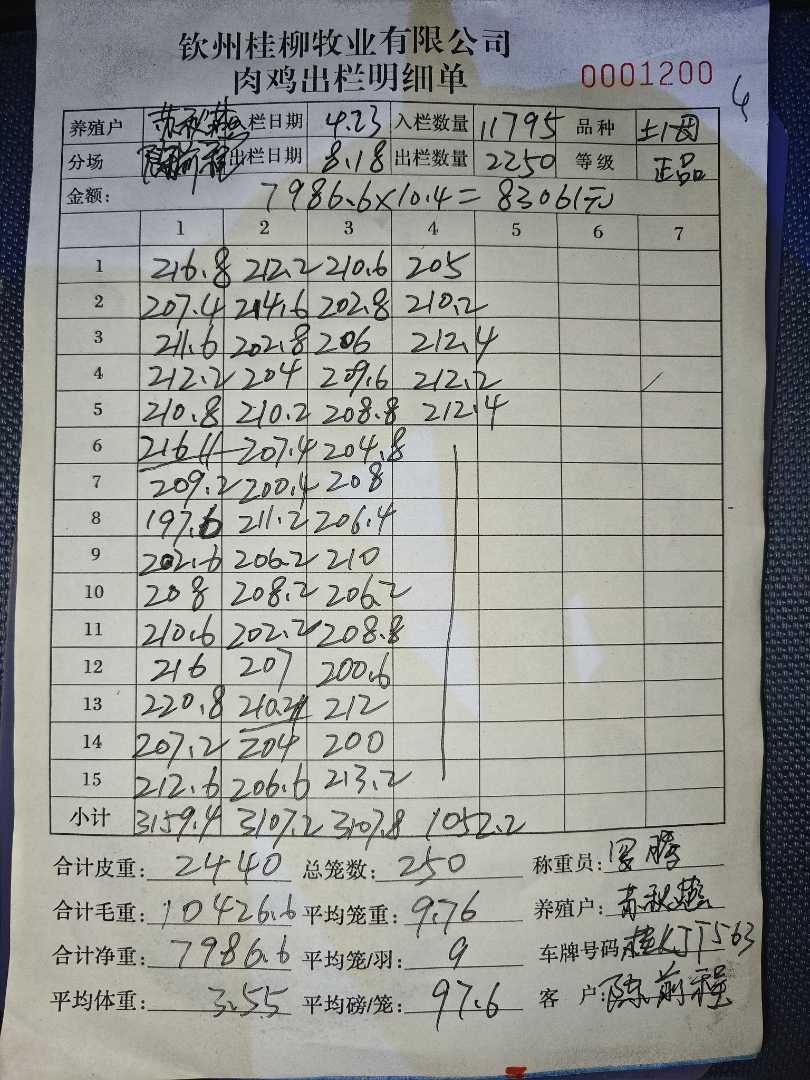 钦州桂柳牧业有限公司
肉鸡出栏明细单 0001200 4
养殖户 苏秋 栏日期 4.23 入栏数量 11795 品种 土1
分场 陈前程 出栏日期 8.18 出栏数量 2250 等级 正品
金额: 7986.6×10.4=83061元
1 2 3 4 5 6 7
1 216.8 212.2 210.6 205
2 207.4 214.6 202.8 210.2
3 211.6 202.8 206 212.4
4 212.2 204 209.6 212.2
5 210.8 210.2 208.8 212.4
6 216 11 207.4 204.8
7 209.2 200.4 208
8 197.6 211.2 206.4
9 202.6 206.2 210
10 208 208.2 206.2
11 210.6 202.2 208.8
12 216 207 200.6
13 220.8 210.2 11 212
14 207.2 204 200
15 212.6 206.6 213.2
小计 3159.4 3107.2 3107.8 1052.2
合计皮重: 2440 总笼数: 250 称重员: 罗腾
合计毛重: 10426.6 平均笼重: 9.76 养殖户: 苏秋
合计净重: 7986.6 平均笼/羽: 9 车牌号码 桂KJT563
平均体重: 3.55 平均磅/笼: 97.6 客户: 陈前程